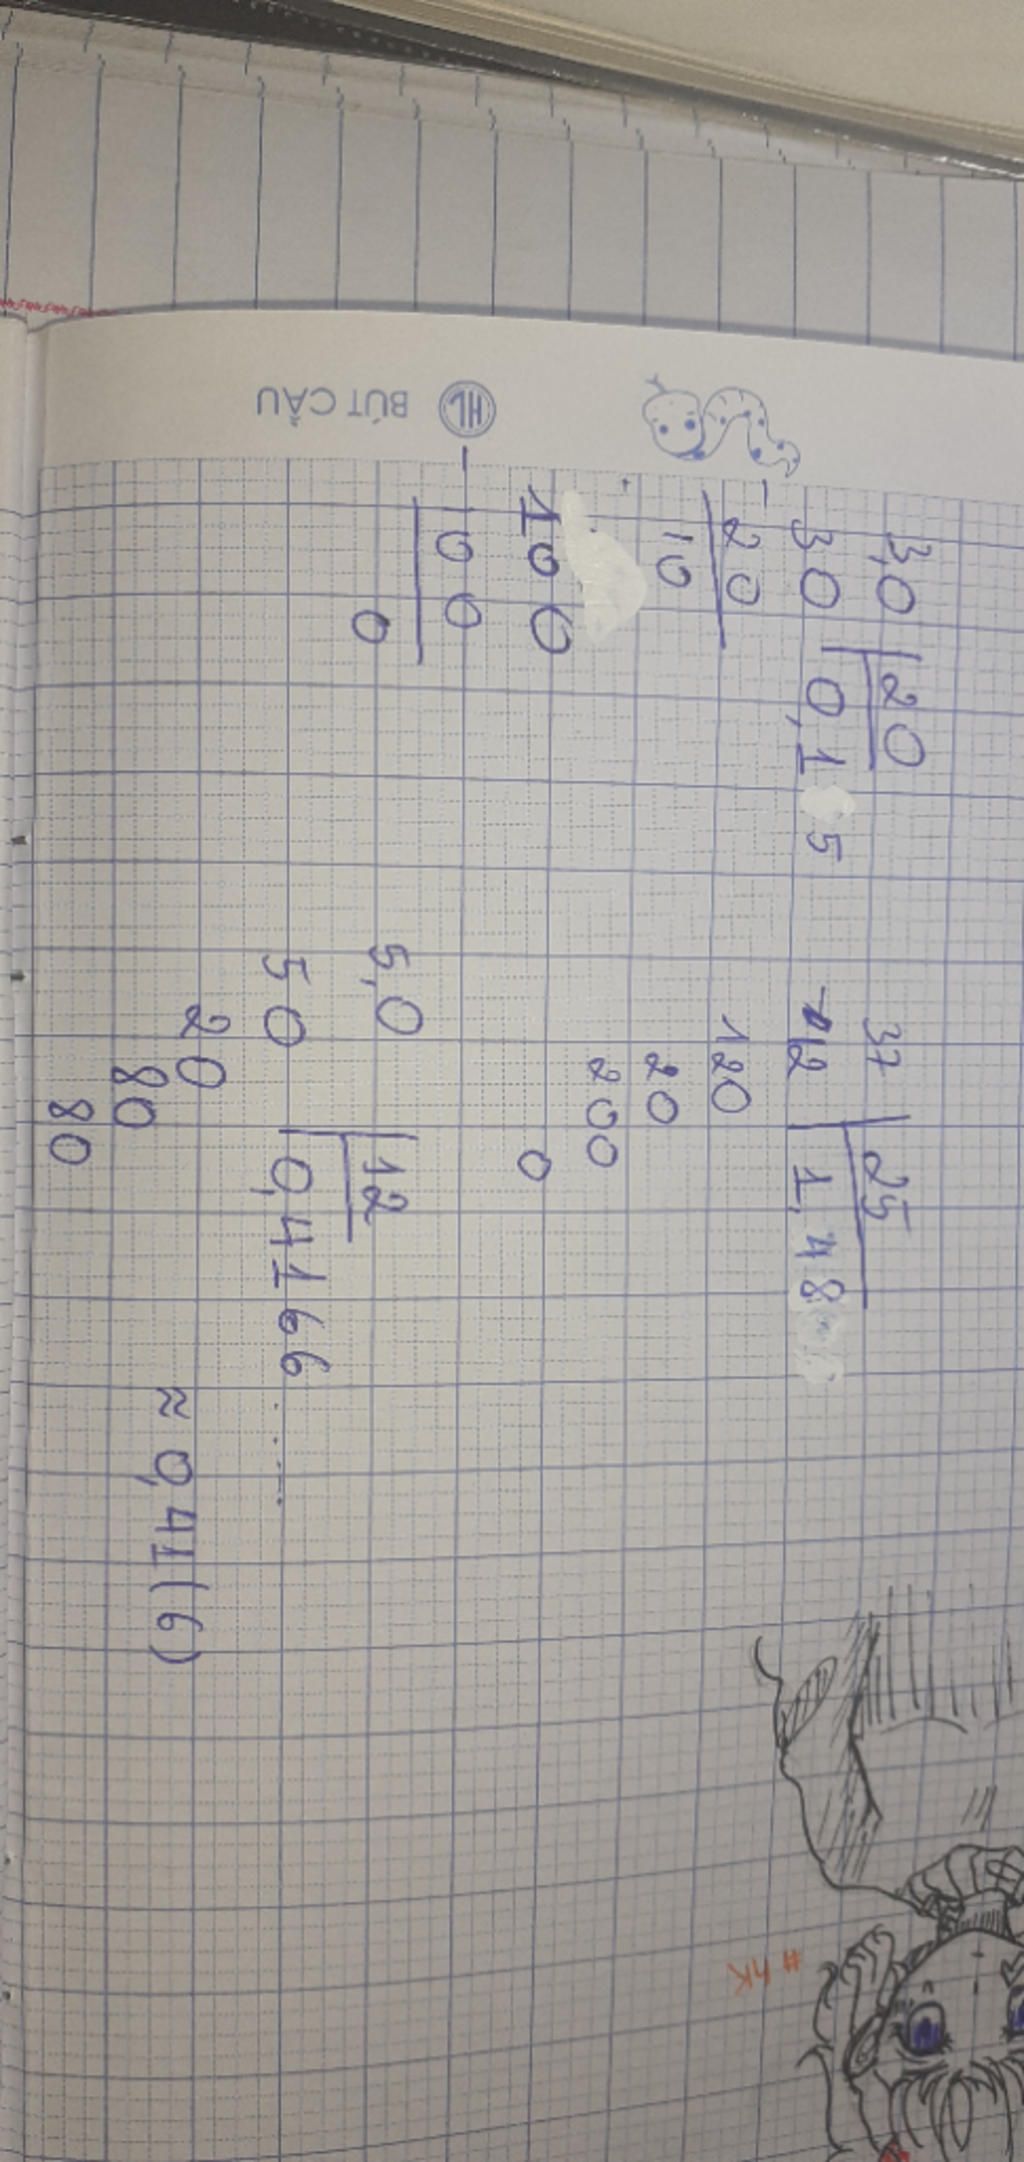 HL BÚT CẦU
3,0 | 20
30 | 0,15
- 20
10
100
- 100
0
37 | 25
12 | 1,48
120
20
200
0
5,0 | 12
50 | 0,4166.....
20
80
80
≈ 0,41(6)
#hK